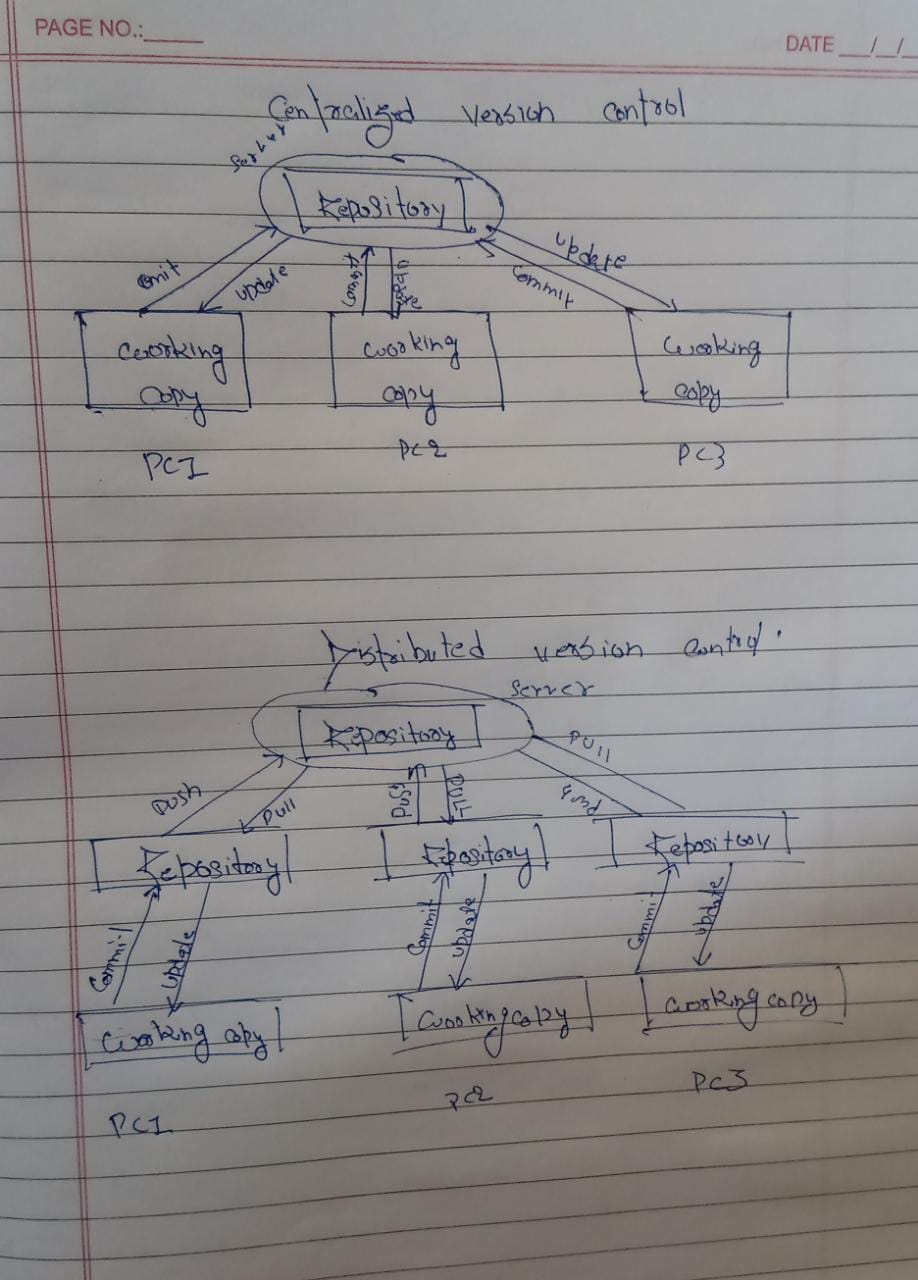 PAGE NO.:
DATE __/__/__
Centralized version control
Server
Repository
omit update commit update update commit
working copy working copy working copy
PC1 PC2 PC3
Distributed version control.
Server
Repository
push pull push pull push pull
Repository Repository Repository
Commit update Commit update Commi- update
working copy working copy working copy
PC1 PC2 PC3